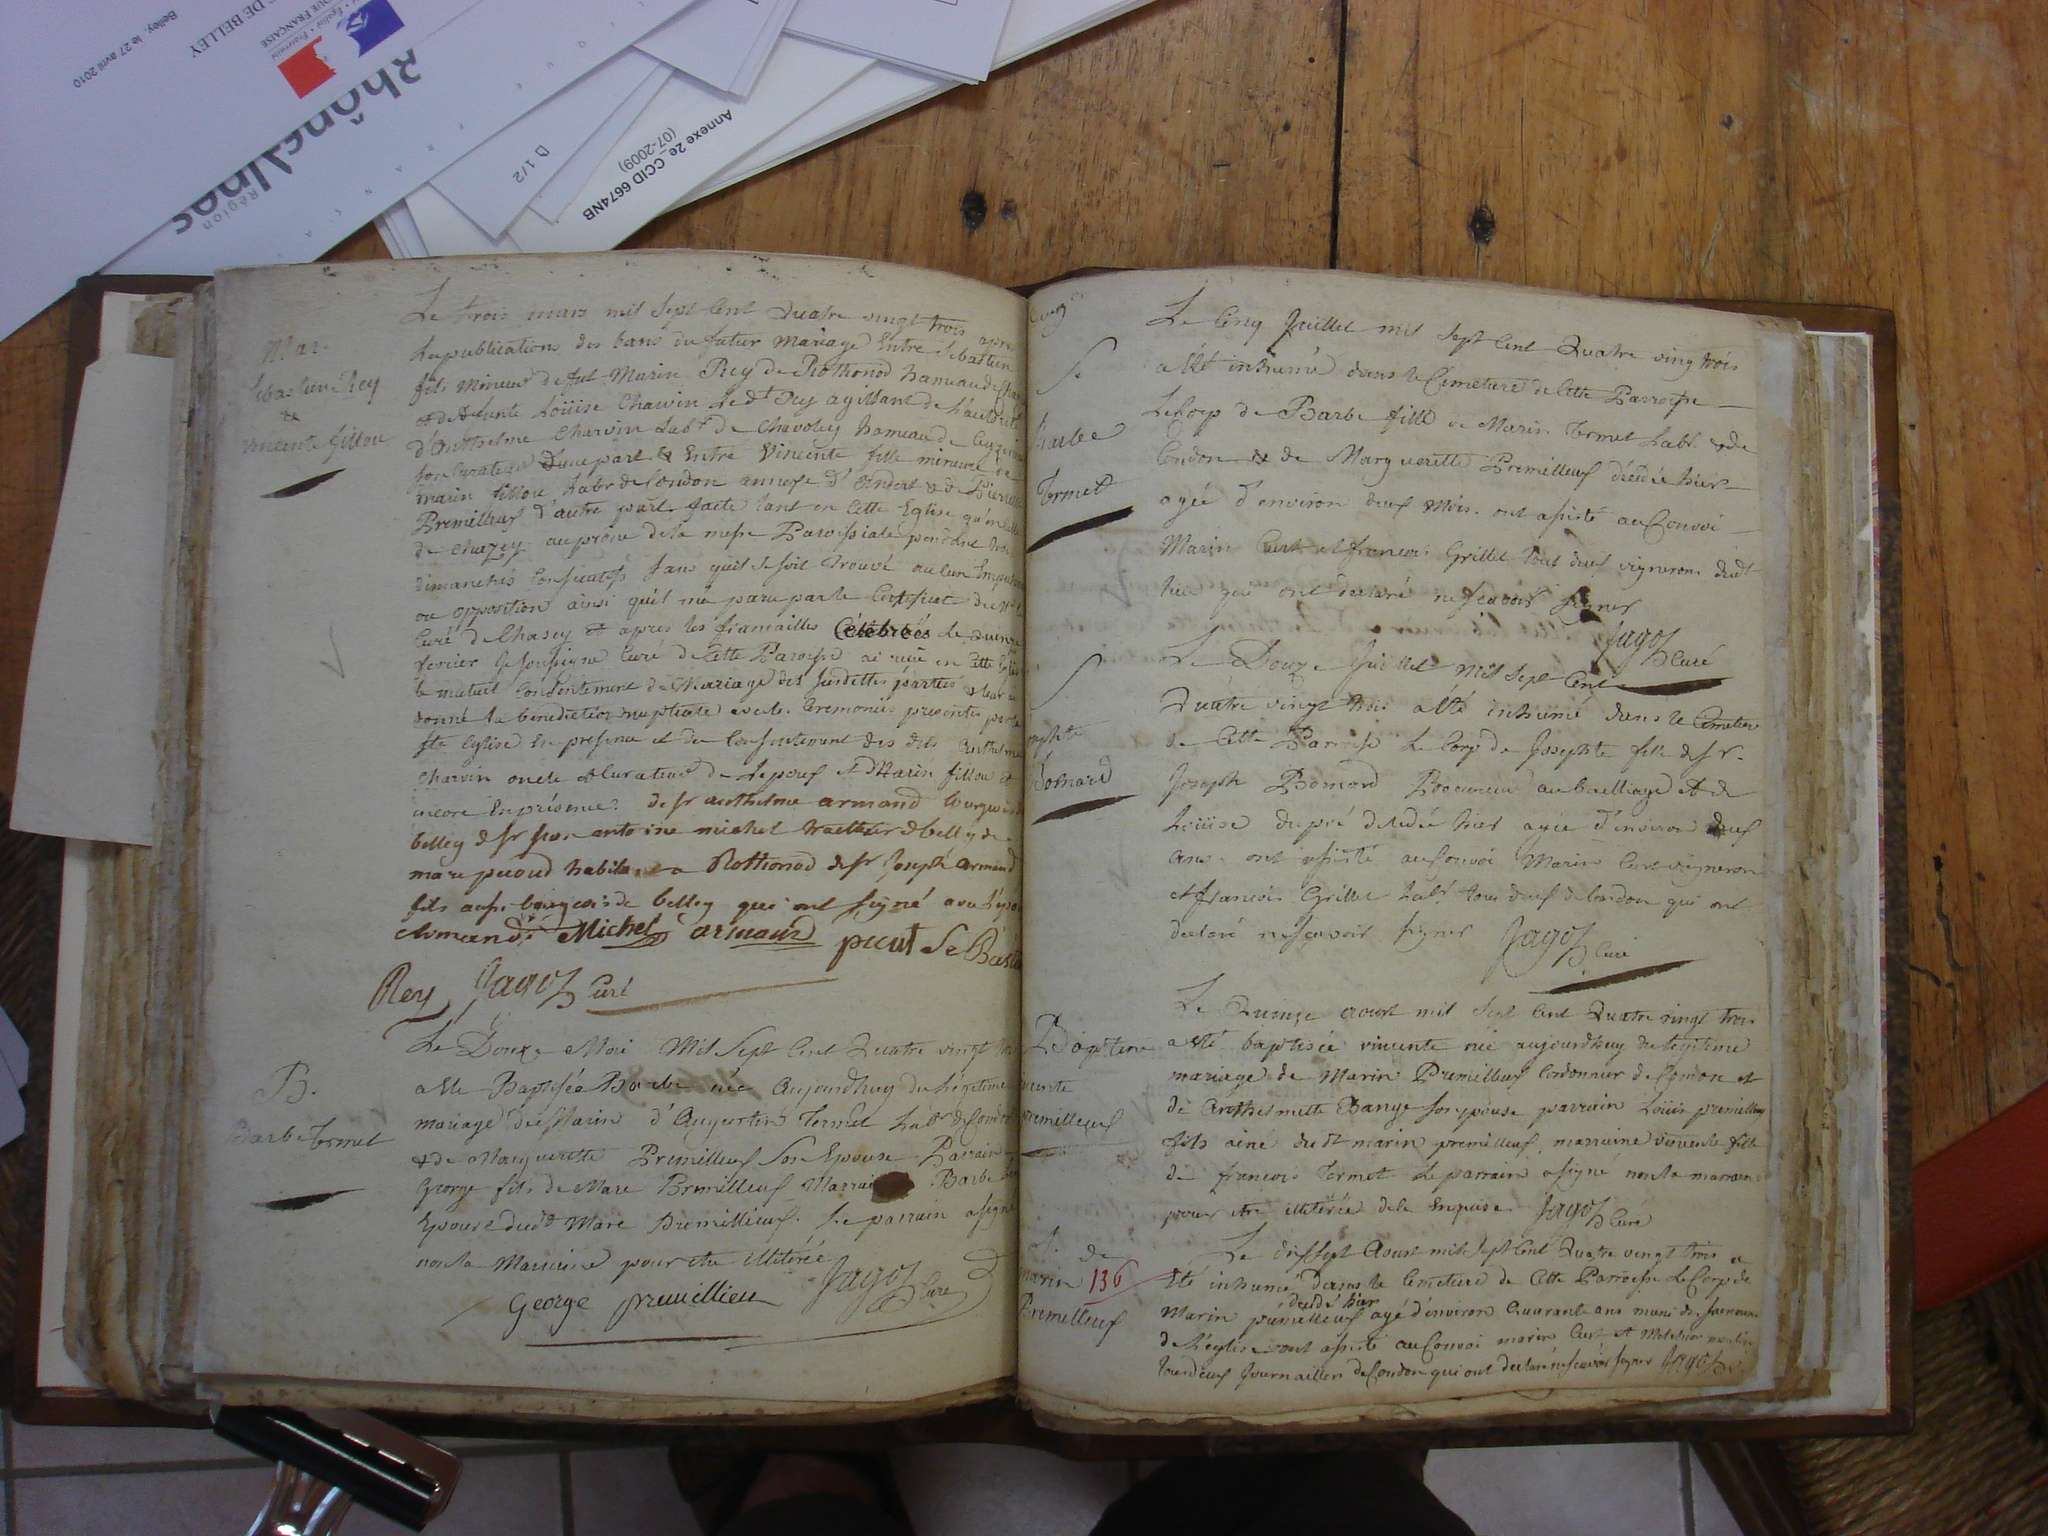 Belley, le 27 avril 2010
DE BELLEY
RhôneAlpes
Région
D 1/2
Annexe 2e_CCID 6674NB
(07-2009)
Mar.
Sebastien Rey
&
vincente fillou
Le trois mars mil sept Cent Quatre vingt trois apres
La publication des bans du futur Mariage Entre Sebastien
fils Mineur de fut Marin Rey de Rothonod hameau de
& de defunte Loüise Charvin Led.t Rey agissant de L'autorité
d'Anthelme Charvin Lab.r de Chavoley hameau de
son Curateur d'une part & Entre Vincente fille mineure de
marin fillou Labr de Condon annexe d'Andert & de Pierrette
Premilleuf d'autre part. faite tant en Cette Eglise qu'en celle
de Chazey au prône de la messe Paroissiale pendant trois
dimanches Consecutifs sans qu'il se soit trouvé aucun Empeche
ou opposition ainsi qu'il m'a paru par le Certificat de Mr
Curé de Chasey et apres les fiancailles Célébrées le
fevrier Je soussigné Curé de Cette Paroisse ai reçu en Cette Eglise
le mutuel Consentement de Mariage des susdittes parties & leur ai
donné la benediction nuptiale avec les Ceremonies prescrites par la
ste Eglise En presence et du Consentement des dits Anthelme
Charvin oncle & Curateur de L'epoux et Marin fillou et
encore En présence de sr anthelme armand bourgeois
belley de sr jean antoine michel de belley de
marc picoud habitant a Rothonod de sr Joseph armand
fils aussi bourgeois de belley qui ont signé avec l'epoux
Armand Michel armand picut Se Bastien
Rey Jagoz Curé
B.
Barbe termet
Le Douze Mai Mil Sept Cent Quatre vingt trois
a esté Baptisée Barbe née Aujourdhuy du Legitime
mariage de Marin d'Augustin Termet Labr de Condon
& de Marguerette Premilleuf Son Epouse Parrain
George fils de Marc Premilleuf Marraine Barbe
Epouse dud.t Marc Premilleuf. Le parrain a signé
non la Marraine pour etre illiterée
George premillieu Jagoz Curé
S
barbe
termet
Le Cinq Juillet mil sept Cent Quatre vingt trois
a été inhumé dans le Cimetiere de Cette Parroisse
Le Corps de Barbe fille de Marin termet Labr de
Condon & de Marguerette Premilleuf décédée hier
agée d'environ deux Mois. ont assisté au Convoi
Marin Curt et francois Grillet tout deux vignerons dud.t
lieu qui ont declaré ne scavoir signer
Jagoz Curé
S
Josephte
Bomard
Le Douze Juillet Mil Sept Cent
Quatre vingt trois a été inhumé dans le Cimetiere
de Cette Parroisse Le Corp de Josephte fille de sr.
Joseph Bomard Procureur au bailliage et de
Loüise dupré décédée hier agée d'environ deux
ans. ont assisté au Convoi Marin Curt vigneron
et francois Grillet Lab.r tous deux de Condon qui ont
declaré ne scavoir signer Jagoz Curé
Baptême
vincente
Premilleuf
Le Quinze aoust mil sept Cent Quatre vingt trois
a été baptisée vincente née aujourdhuy du legitime
mariage de Marin Premilleuf Cordonnier de Condon et
de Anthelmette Bange son epouse parrain Loüis premilleuf
fils ainé dud.t marin premilleuf, marraine vincente fille
de francois termet Le parrain a signé non la marraine
pour etre illiterée de la Enquise. Jagoz Curé
S. de
marin 136
Premilleuf
Le dixsept Aoust mil Sept Cent Quatre vingt trois a
été inhumé dans le Cimetiere de Cette Parroisse Le Corp de
décédé hier
Marin premilleuf agé d'environ Quarante ans muni des sacremens
de L'eglise ont assisté au Convoi marin Curt et
tous deux Journaliers de Condon qui ont declaré ne scavoir signer Jagoz